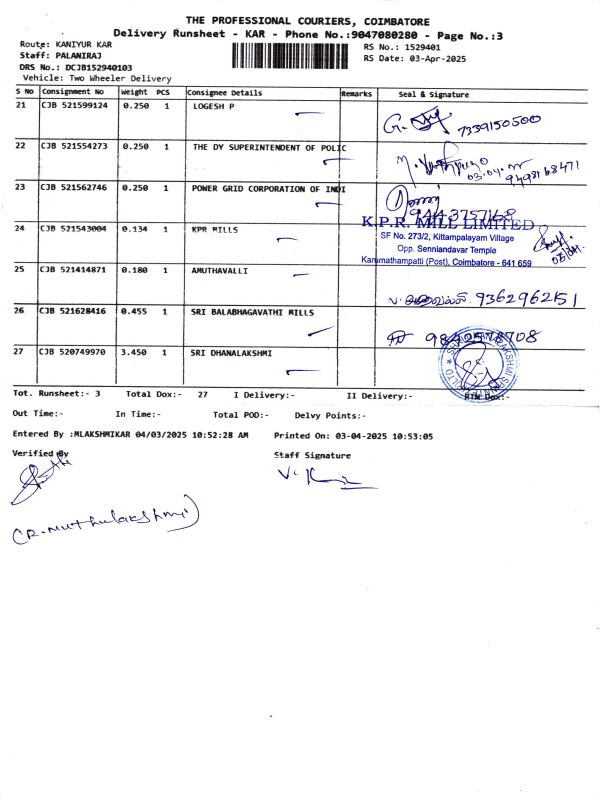 THE PROFESSIONAL COURIERS, COIMBATORE
Delivery Runsheet - KAR - Phone No.:9047080280 - Page No.:3
Route: KANIYUR KAR
RS No.: 1529401
Staff: PALANIRAJ
RS Date: 03-Apr-2025
DRS No.: DCJB152940103
Vehicle: Two Wheeler Delivery
S No Consignment No Weight PCS Consignee Details Remarks Seal & Signature
21 CJB 521599124 0.250 1 LOGESH P
7339150500
22 CJB 521554273 0.250 1 THE DY SUPERINTENDENT OF POLIC
9498168471
23 CJB 521562746 0.250 1 POWER GRID CORPORATION OF INDI
9443757168
24 CJB 521543004 0.134 1 KPR MILLS
K.P.R. MILL LIMITED
SF No. 273/2, Kittampalayam Village
Opp. Senniandavar Temple
Karumathampatti (Post), Coimbatore - 641 659
25 CJB 521414871 0.180 1 AMUTHAVALLI
9362962151
26 CJB 521628416 0.455 1 SRI BALABHAGAVATHI MILLS
27 CJB 520749970 3.450 1 SRI DHANALAKSHMI
Tot. Runsheet:- 3 Total Dox:- 27 I Delivery:- II Delivery:- RTN Dox:-
Out Time:- In Time:- Total POD:- Delvy Points:-
Entered By :MLAKSHMIKAR 04/03/2025 10:52:28 AM Printed On: 03-04-2025 10:53:05
Verified By Staff Signature
(R. Muthulakshmi)